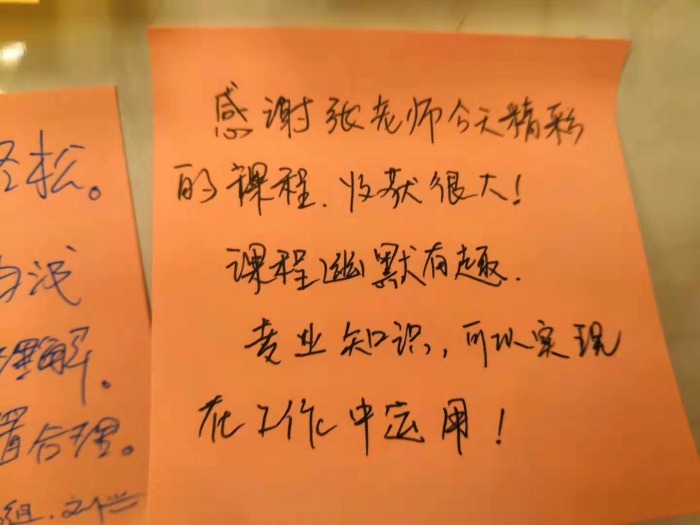 感谢张老师今天精彩
的课程.收获很大!
课程幽默有趣.
专业知识,可以实现
在工作中运用!
松。
浅
理解.
置合理。
组.